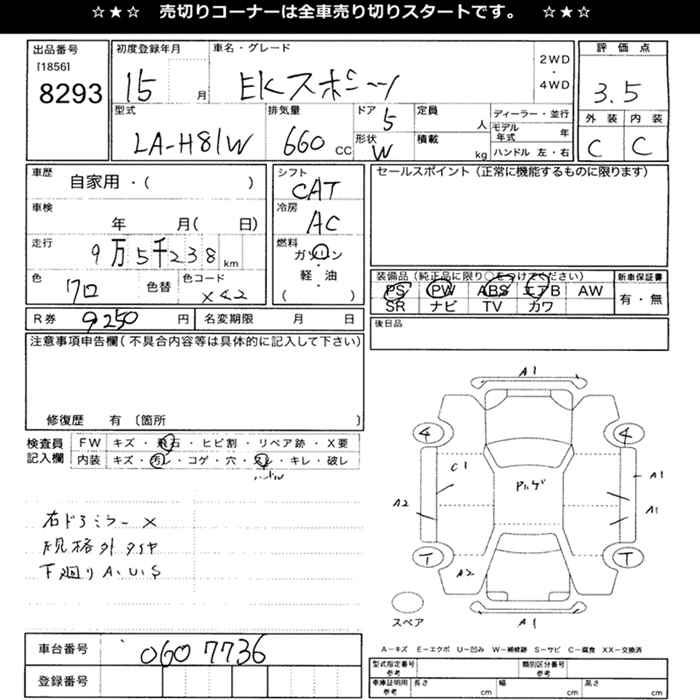 ☆★☆ 売切りコーナーは全車売り切りスタートです。 ☆★☆
出品番号
[1856]
8293
初度登録年月
15 月
車名・グレード
EKスポーツ
2WD
・
4WD
評価点
3.5
型式
LA-H81W
排気量
660 cc
ドア
5
形状
W
定員
人
積載
kg
ディーラー・並行
モデル年式 年
ハンドル 左・右
外装 内装
C C
車歴
自家用・( )
車検
年 月( 日)
走行
9万5千238 km
色
クロ
色替
色コード
X42
シフト
CAT
冷房
AC
燃料
ガソリン
・
軽・油
( )
セールスポイント (正常に機能するものに限ります)
装備品(純正品に限り○をつけてください)
PS PW ABS エアB AW
SR ナビ TV カワ
新車保証書
有・無
R券 9250 円
名変期限 月 日
後日品
注意事項申告欄(不具合内容等は具体的に記入して下さい)
修復歴 有 〔箇所 〕
検査員記入欄
FW キズ・飛石・ヒビ割・リペア跡・X要
内装 キズ・汚レ・コゲ・穴・スレ・キレ・破レ
右ドアミラーX
規格外タイヤ
下廻りA.U.S
A1
4 4
C1
A2
A1
A1
T T
A2
A1
スペア
A−キズ E−エクボ U−凹み W−補修跡 S−サビ C−腐食 XX−交換済
車台番号 0607736
登録番号
型式指定番号 参考
類別区分番号 参考
車庫証明用 参考
長さ cm 幅 cm 高さ cm